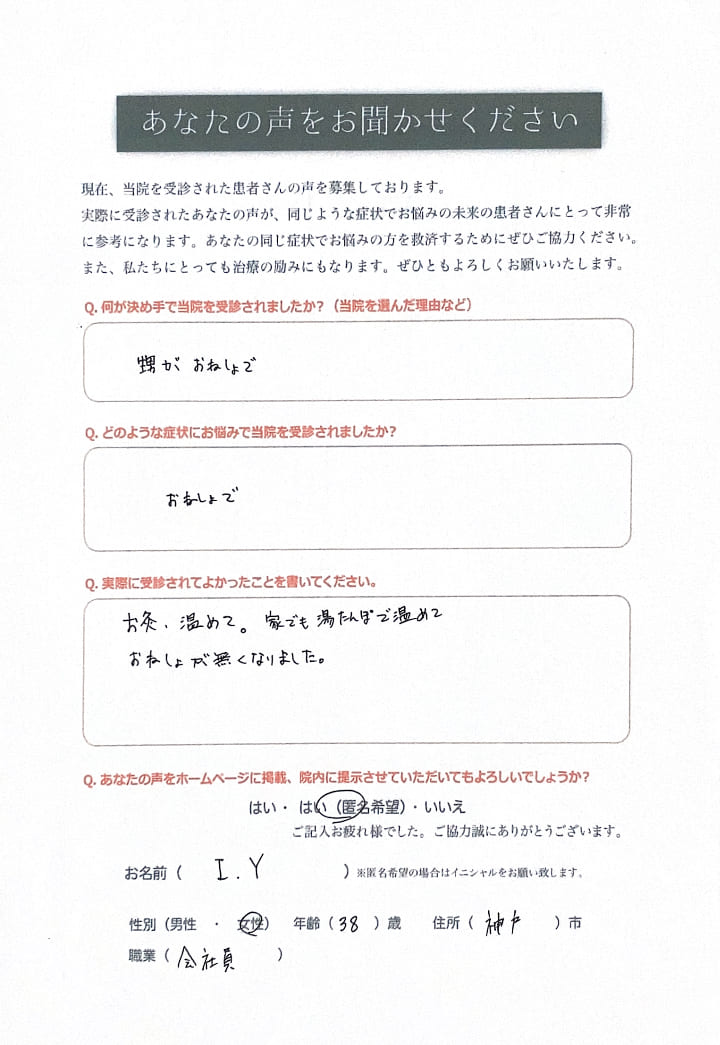 あなたの声をお聞かせください
現在、当院を受診された患者さんの声を募集しております。
実際に受診されたあなたの声が、同じような症状でお悩みの未来の患者さんにとって非常
に参考になります。あなたの同じ症状でお悩みの方を救済するためにぜひご協力ください。
また、私たちにとっても治療の励みにもなります。ぜひともよろしくお願いいたします。
Q. 何が決め手で当院を受診されましたか？（当院を選んだ理由など）
甥が おねしょで
Q. どのような症状にお悩みで当院を受診されましたか？
おねしょで
Q. 実際に受診されてよかったことを書いてください。
お灸、温めて。家でも湯たんぽで温めて
おねしょが無くなりました。
Q. あなたの声をホームページに掲載、院内に提示させていただいてもよろしいでしょうか？
はい・ はい（匿名希望）・いいえ
ご記入お疲れ様でした。ご協力誠にありがとうございます。
お名前（ I.Y ）※匿名希望の場合はイニシャルをお願い致します。
性別（男性 ・ 女性） 年齢（ 38 ）歳 住所（ 神戸 ）市
職業（ 会社員 ）